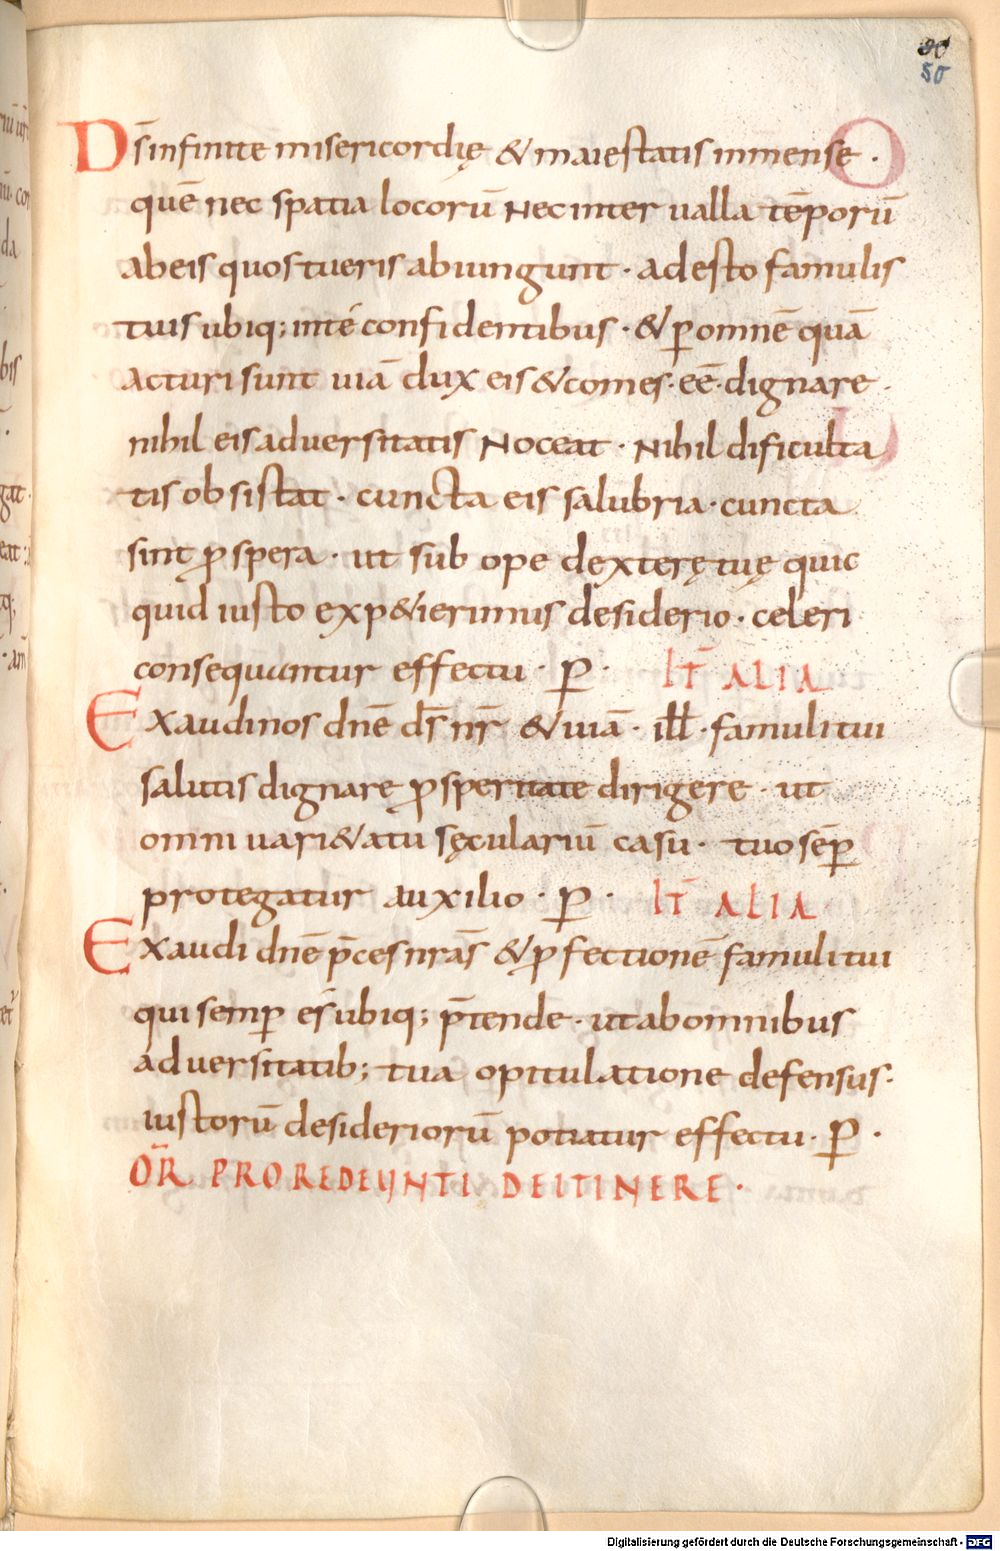 50
Ds̄ infinite misericordię & maiestatis inmense .
quē nec spatia locorū nec inter ualla tēporū
ab eis quos tueris abiungunt · adesto famulis
tuis ubiq; in té confidentibus · & ꝑ omnē quā
acturi sunt uiā dux eis & comes · eē · dignare ·
nihil eis aduersitatis noceat · nihil dificulta
tis obsistat · cuncta eis salubria · cuncta
sint ꝓspera · ut sub ope dexterę tuę quic
quid iusto exp&ierimus desiderio · celeri
consequantur effectu · P̱ · IT̄ ALIA
Exaudi nos dn̄e ds̄ nr̄ & uiā · ill̄ · famuli tui
salutis dignare ꝓsperitate dirigere · ut
omni uari&atu sęculariū casu · tuo sēꝑ
protegatur auxilio · P̱ · IT̄ ALIA
Exaudi dn̄e p̄ces nrā̄s & ꝓfectionē famuli tui
qui semꝑ es̄ ubiq; p̄tende · ut ab omnibus
aduersitatib; tua opitulatione defensus ·
iustorū desideriorū potiatur effectu · P̱ ·
OR̄ PRO REDEUNTI DE ITINERE ·
Digitalisierung gefördert durch die Deutsche Forschungsgemeinschaft - DFG